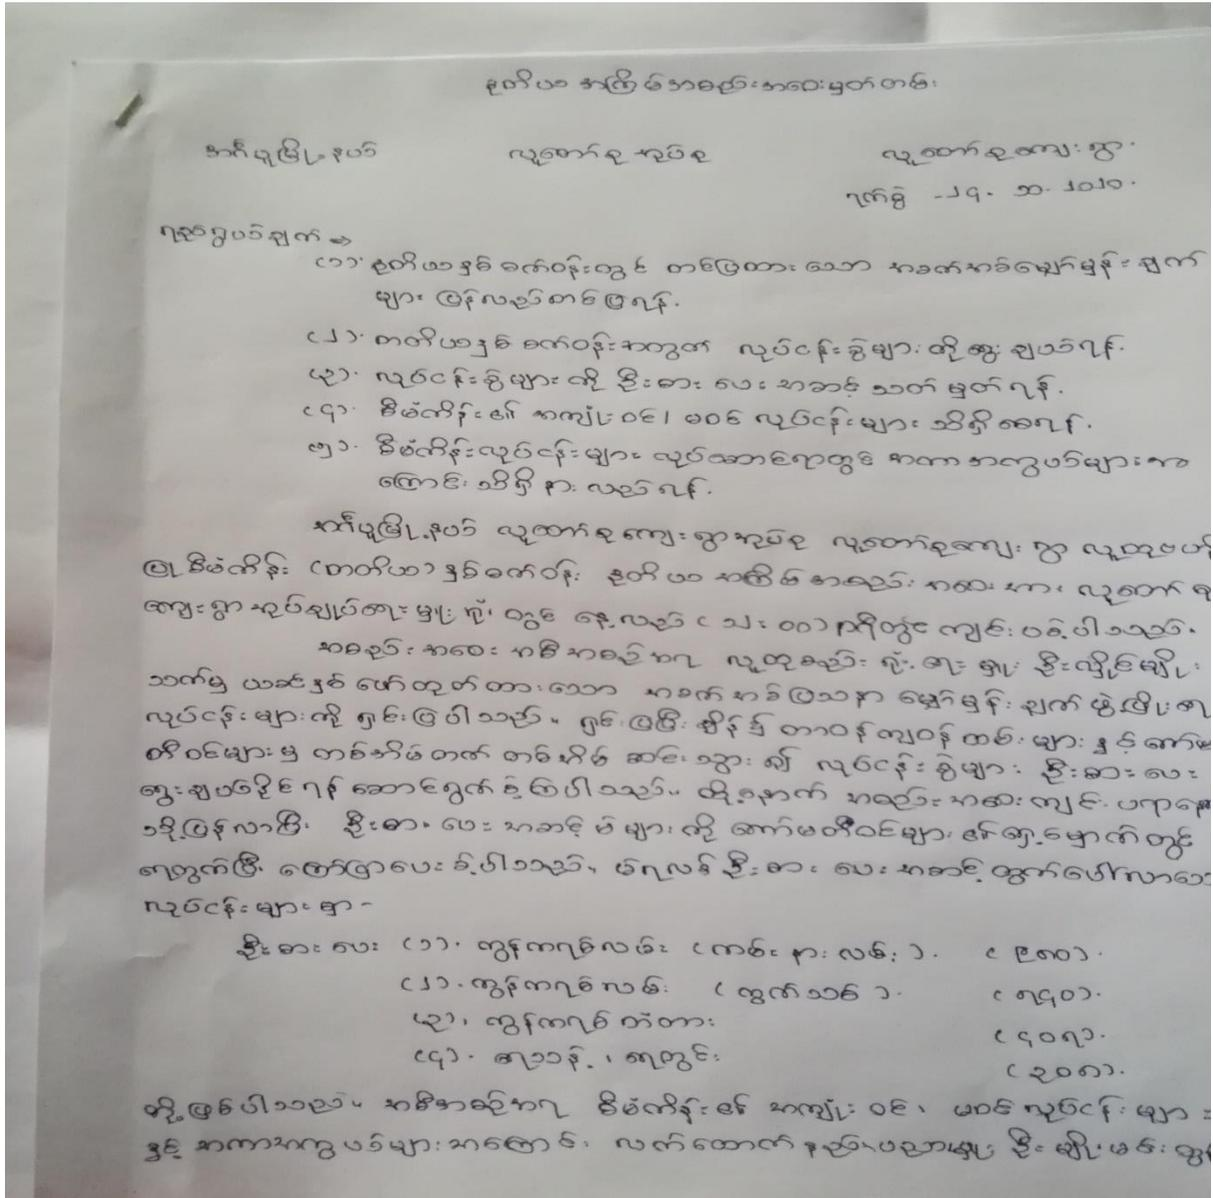 ဒုတိယ အကြိမ်အစည်းအဝေးမှတ်တမ်း
အင်္ဂပူမြို့နယ် လူတော်စု အုပ်စု လူတော်စုကျေးရွာ.
ရက်စွဲ - ၂၄. ၁၁. ၂၀၂၀.
ရည်ရွယ်ချက် ⇒
(၁). ဒုတိယနှစ် စက်ဝန်းတွင် တင်ပြထားသော အခက်အခဲမျှော်မှန်းချက်
များ ပြန်လည်တင်ပြရန်.
(၂). တတိယနှစ် စက်ဝန်းအတွက် လုပ်ငန်းခွဲများကို ရွေးချယ်ရန်.
(၃). လုပ်ငန်းခွဲများကို ဦးစားပေးအဆင့် သတ်မှတ်ရန်.
(၄). စီမံကိန်း၏ အကျုံးဝင်၊ မဝင် လုပ်ငန်းများ သိရှိစေရန်.
(၅). စီမံကိန်းလုပ်ငန်းများ လုပ်ဆောင်ရာတွင် အကာအကွယ်များအ
ကြောင်း သိရှိနားလည်ရန်.
အင်္ဂပူမြို့နယ် လူတော်စုကျေးရွာအုပ်စု လူတော်စုကျေးရွာ လူထုဗဟို
ပြုစီမံကိန်း (တတိယ) နှစ်စက်ဝန်း ဒုတိယ အကြိမ်အစည်းအဝေးအား လူတော်စု
ကျေးရွာအုပ်ချုပ်ရေးမှူးရုံးတွင် နေ့လည် ( ၁း ၀၀ ) နာရီတွင် ကျင်းပခဲ့ပါသည်.
အစည်းအဝေး အစီအစဉ်အရ လူထုစည်းရုံးရေးမှူး ဦးလှိုင်မျိုး
သက်မှ ယခင်နှစ် ဖော်ထုတ်ထားသော အခက်အခဲပြဿနာ မျှော်မှန်းချက် ဖွံ့ဖြိုးရေး
လုပ်ငန်းများကို ရှင်းပြပါသည်။ ရှင်းပြပြီးချိန်၌ တာဝန်ကျဝန်ထမ်းများနှင့် ကော်မ
တီဝင်များမှ တစ်အိမ်တက် တစ်အိမ် ဆင်းသွား၍ လုပ်ငန်းခွဲများ ဦးစားပေး
ရွေးချယ်နိုင်ရန် ဆောင်ရွက်ခဲ့ကြပါသည်။ ထို့နောက် အစည်းအဝေးကျင်းပရာနေရာ
သို့ပြန်လာပြီး ဦးစားပေးအဆင့် မဲများကို ကော်မတီဝင်များ၏ရှေ့မှောက်တွင်
ရေတွက်ပြီး ကြော်ငြာပေးခဲ့ပါသည်။ မဲရလဒ် ဦးစားပေးအဆင့် ထွက်ပေါ်လာသော
လုပ်ငန်းများမှာ -
ဦးစားပေး (၁). ကွန်ကရစ်လမ်း (ကမ်းနားလမ်း). ( ၉၈၀).
(၂). ကွန်ကရစ်လမ်း (ကွက်သစ်). ( ၈၄၀).
(၃). ကွန်ကရစ်တံတား ( ၄၀၈).
(၄). ရေသန့်၊ ရေတွင်း ( ၃၀၈).
တို့ဖြစ်ပါသည်။ အစီအစဉ်အရ စီမံကိန်း၏ အကျုံးဝင်၊ မဝင်လုပ်ငန်းများ
နှင့် အကာအကွယ်များအကြောင်း လက်ထောက်နည်းပညာမှူး ဦးမျိုးမင်းထွန်